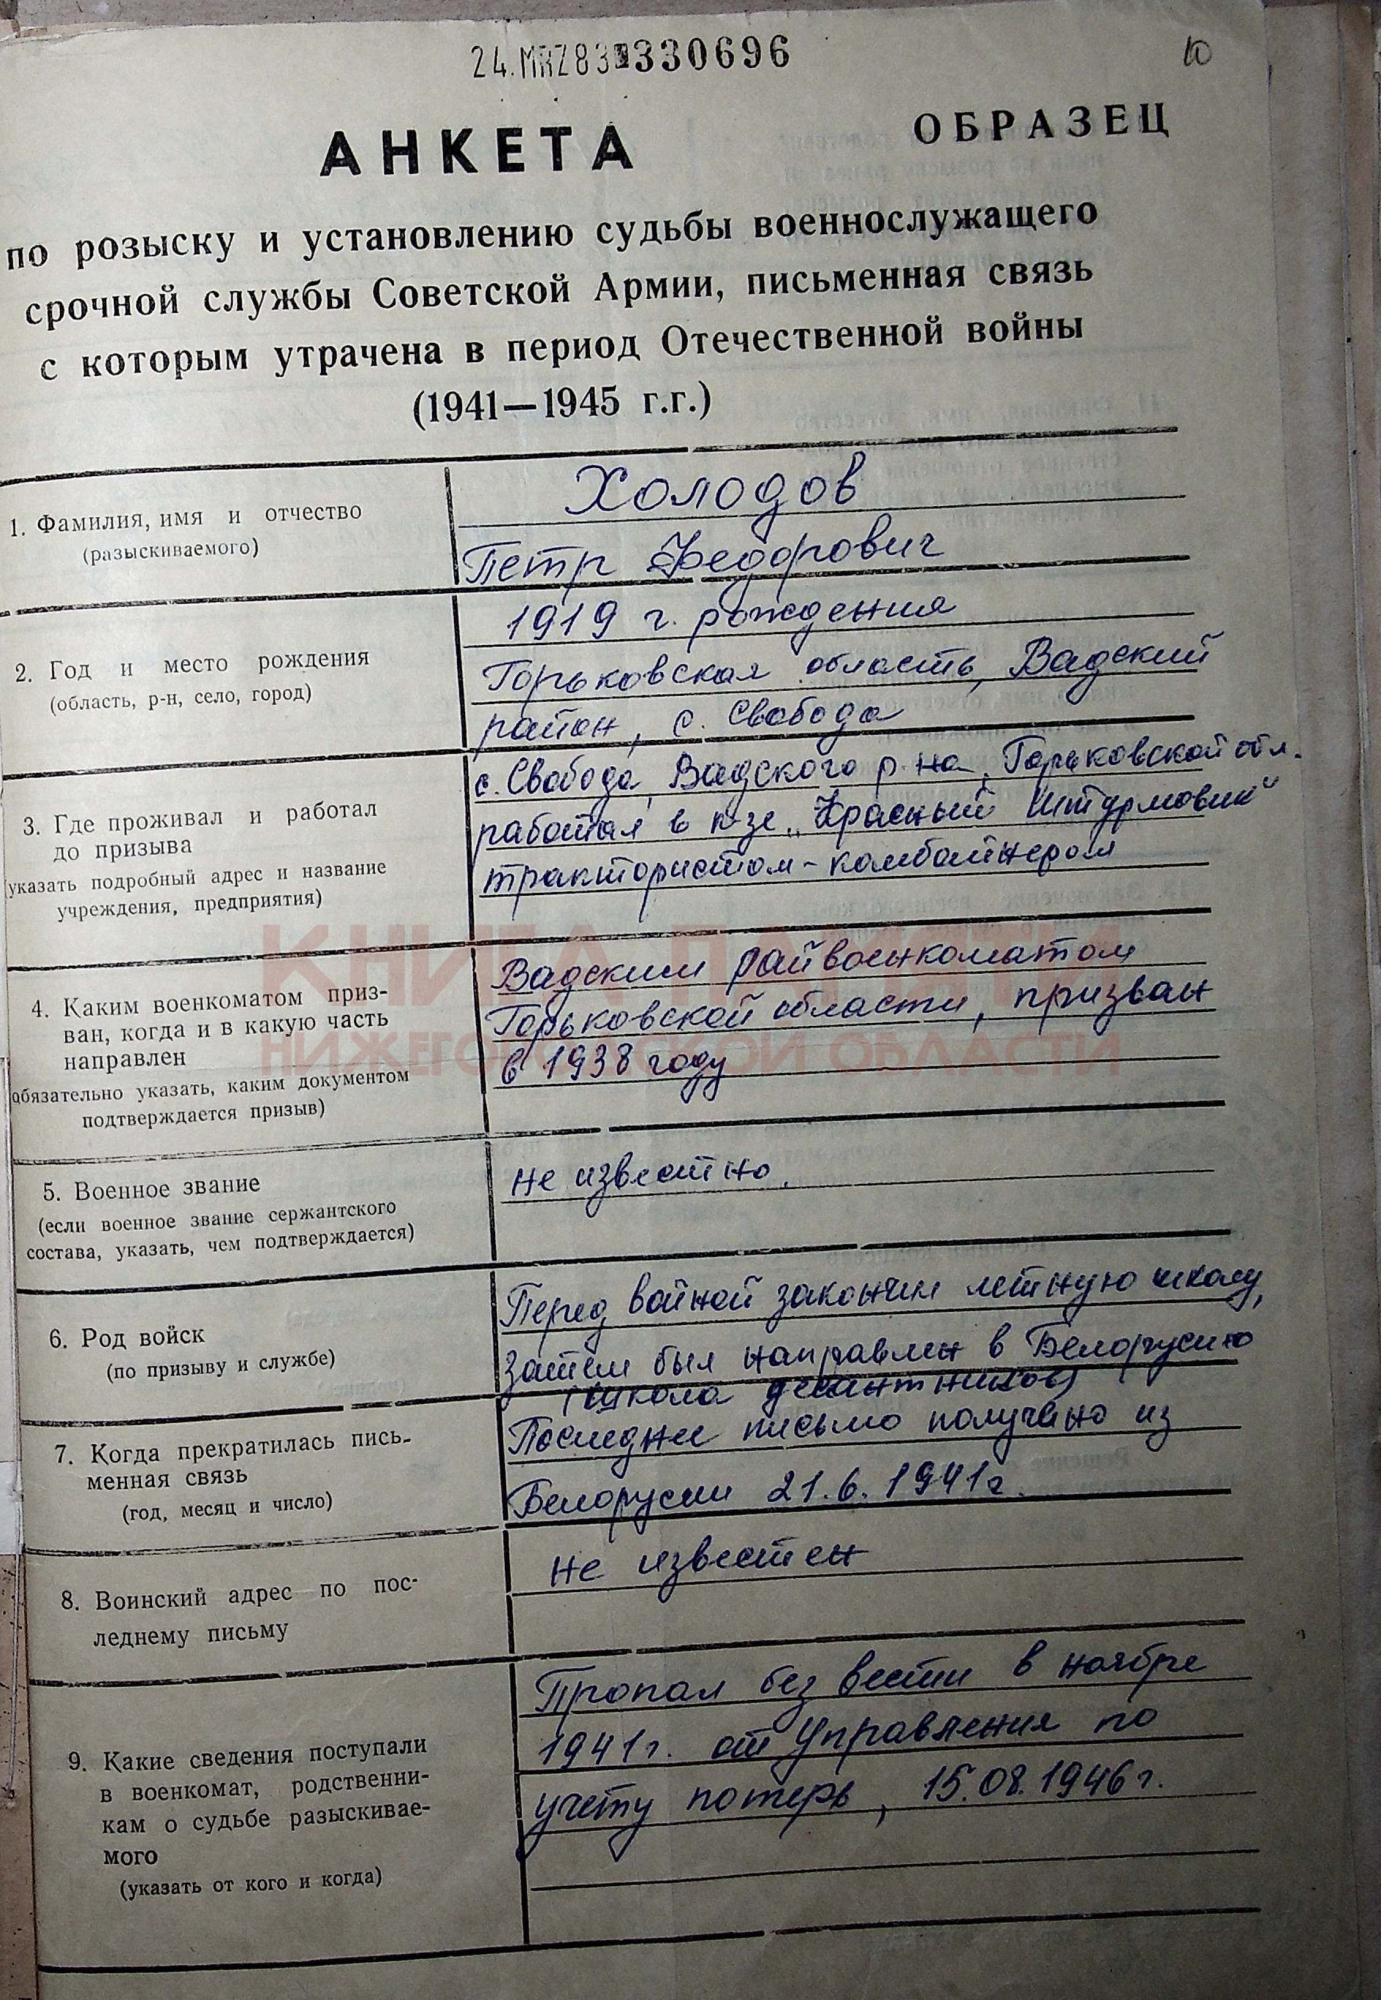 24.MRZ83 330696
10
ОБРАЗЕЦ
АНКЕТА
по розыску и установлению судьбы военнослужащего
срочной службы Советской Армии, письменная связь
с которым утрачена в период Отечественной войны
(1941—1945 г.г.)
1. Фамилия, имя и отчество
(разыскиваемого)
Холодов
Петр Федорович
2. Год и место рождения
(область, р-н, село, город)
1919 г. рождения
Горьковская область, Вадский
район, с. Свобода
3. Где проживал и работал
до призыва
(указать подробный адрес и название
учреждения, предприятия)
с. Свобода, Вадского р-на, Горьковской обл.
работал в к-зе „Красный Штурмовик"
трактористом-комбайнером
4. Каким военкоматом приз-
ван, когда и в какую часть
направлен
обязательно указать, каким документом
подтверждается призыв)
Вадским райвоенкоматом
Горьковской области, призван
в 1938 году
КНИГА ПАМЯТИ
НИЖЕГОРОДСКОЙ ОБЛАСТИ
5. Военное звание
(если военное звание сержантского
состава, указать, чем подтверждается)
не известно.
6. Род войск
(по призыву и службе)
Перед войной закончил летную школу,
Затем был направлен в Белорусию
(школа десантников)
7. Когда прекратилась пись-
менная связь
(год, месяц и число)
Последнее письмо получено из
Белорусии 21.6.1941г.
8. Воинский адрес по пос-
леднему письму
не известен
9. Какие сведения поступали
в военкомат, родственни-
кам о судьбе разыскивае-
мого
(указать от кого и когда)
Пропал без вести в ноябре
1941г. от Управления по
учету потерь, 15.08.1946г.